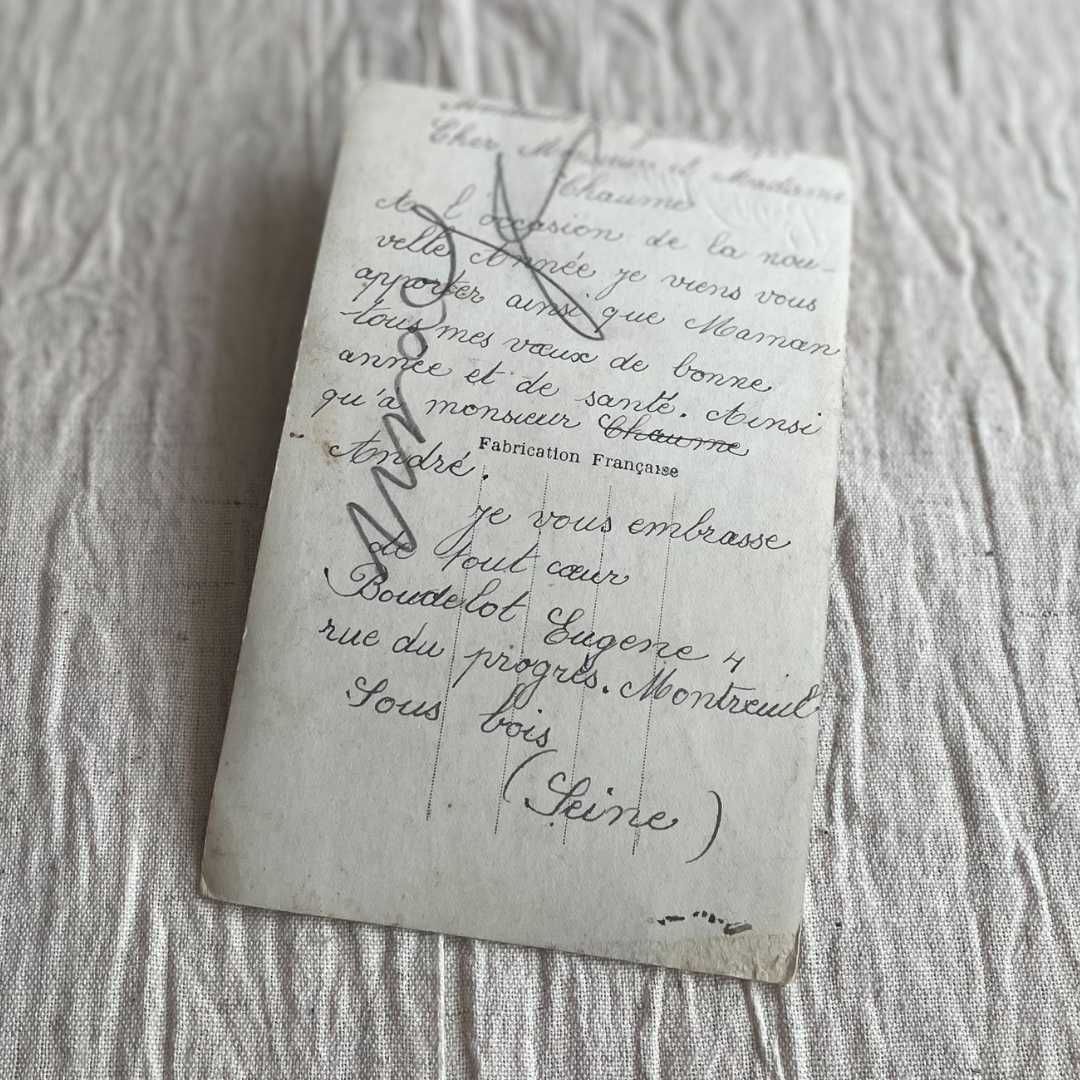 Cher Monsieur et Madame
Chaume
A l'occasion de la nou-
velle Année je viens vous
apporter ainsi que Maman
tous mes vœux de bonne
année et de santé. Ainsi
qu'à monsieur Chaume
Fabrication Française
André.
je vous embrasse
de tout cœur
Boudelot Eugene 4
rue du progrès. Montreuil
Sous bois
(Seine)